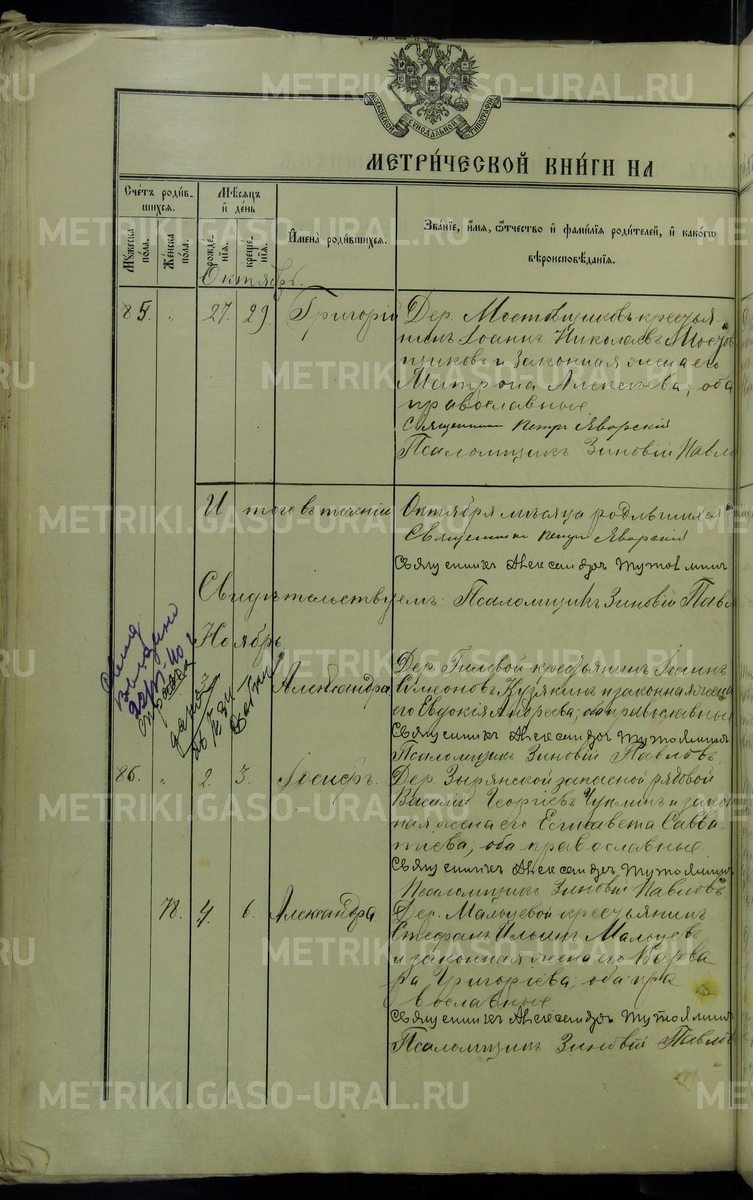 МОСКОВСКОЙ СѴНОДАЛЬНОЙ ТИПОГРАФІИ
МЕТРИ́ЧЕСКОЙ КНИ́ГИ НА
Сче́тъ роди́в-
шихся.
Му́жеска
по́ла.
Же́нска
по́ла.
Мѣ́сяцъ
и҆ де́нь
рожде-
нїѧ.
креще-
нїѧ.
И҆мена̀ роди́вшихся.
Зва́нїе, и҆́мя, ѻ҆́тчество и҆ фами́лїя роди́телей, и҆ како́гѡ
вѣроисповѣ́данїя.
Октябрь.
85. " 27. 29. Григорій
Дер. Мостовщиковъ крестья-
нинъ Іоаннъ Николаевъ Мостов
щиковъ и законная жена его
Матрона Алексѣева, оба
православные
Священникъ Петръ Яворскій
Псаломщикъ Зиновій Павло
Итого въ теченіи Октября мѣсяца родившихся
Священникъ Петръ Яворскій
Священникъ Александръ Тутолминъ
Свидѣтельствуемъ: Псаломщикъ Зиновій Павл
Ноябрь
выдано
Александра
Дер. Гилевой крестьянинъ Іоаннъ
Симеоновъ Кузякинъ и законная жена
его Евдокія Андреева; оба православные
Священникъ Александръ Тутолминъ
Псаломщикъ Зиновій Павловъ.
86. " 2. 3. Іосифъ.
Дер. Зырянской запасной рядовой
Василій Георгіевъ Чуклинъ и закон
ная жена его Елисавета Савва-
тіева; оба православные
Священникъ Александръ Тутолминъ
Псаломщикъ Зиновій Павловъ
78. 4. 6. Александра
Дер. Мальцевой крестьянинъ
Стефанъ Ильинъ Мальцевъ
и законная жена его Варва
ра Григоріева; оба пра
вославные
Священникъ Александръ Тутолминъ
Псаломщикъ Зиновій Павловъ
METRIKI.GASO-URAL.RU